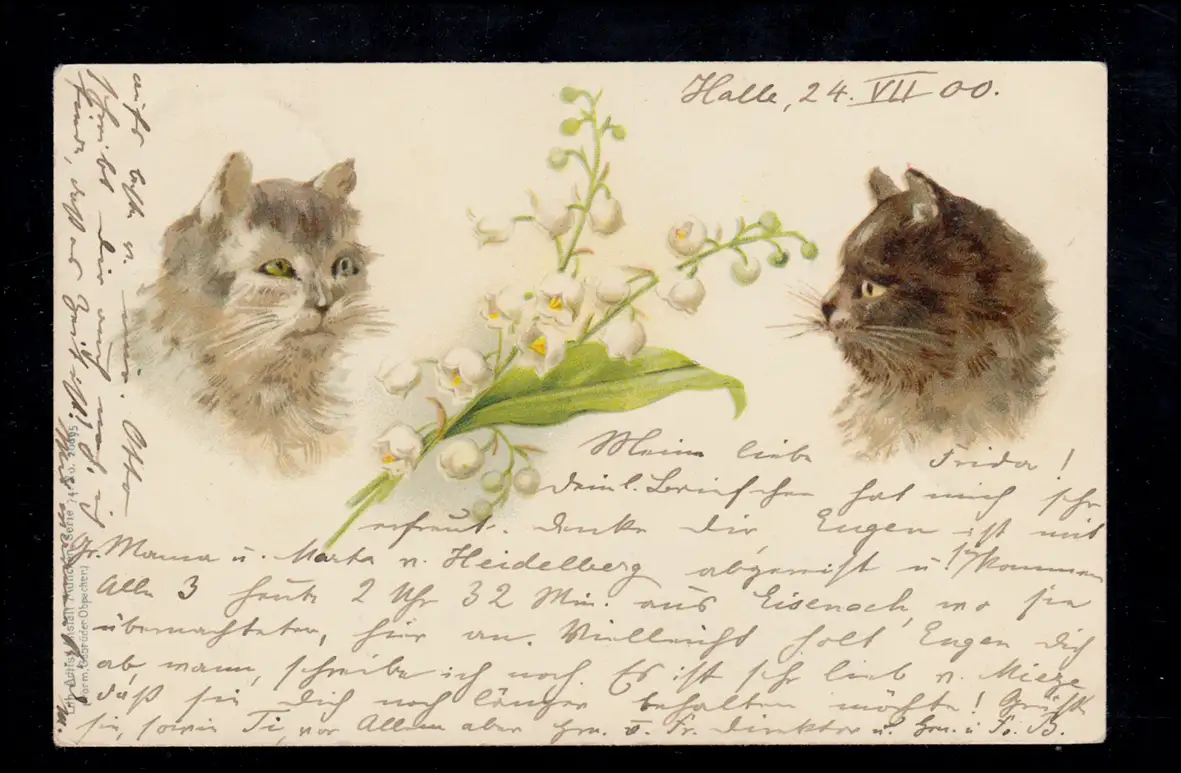 Halle, 24. VII 00.
Mein liebe Frida!
Dein l. Briefchen hat mich sehr
erfreut. Denke Dir, Eugen ist mit
Fr. Mama u. Marta n. Heidelberg abgereist u. kommen
Alle 3 heute 2 Uhr 32 Min. aus Eisenach, wo sie
übernachteten, hier an. Vielleicht holt Eugen Dich
ab, wann, schreibe ich noch. Es ist sehr lieb v. Mieze
daß sie Dich noch länger behalten möchte! Grüße
sie, sowie Ti, vor Allem aber Hrn. u. Fr. Direktor u. Hrn. u. Fr. B.
aufs beste v. mir. Otto
schreibt Dir auch noch. ich
finde, daß es Zeit ist!
Serie